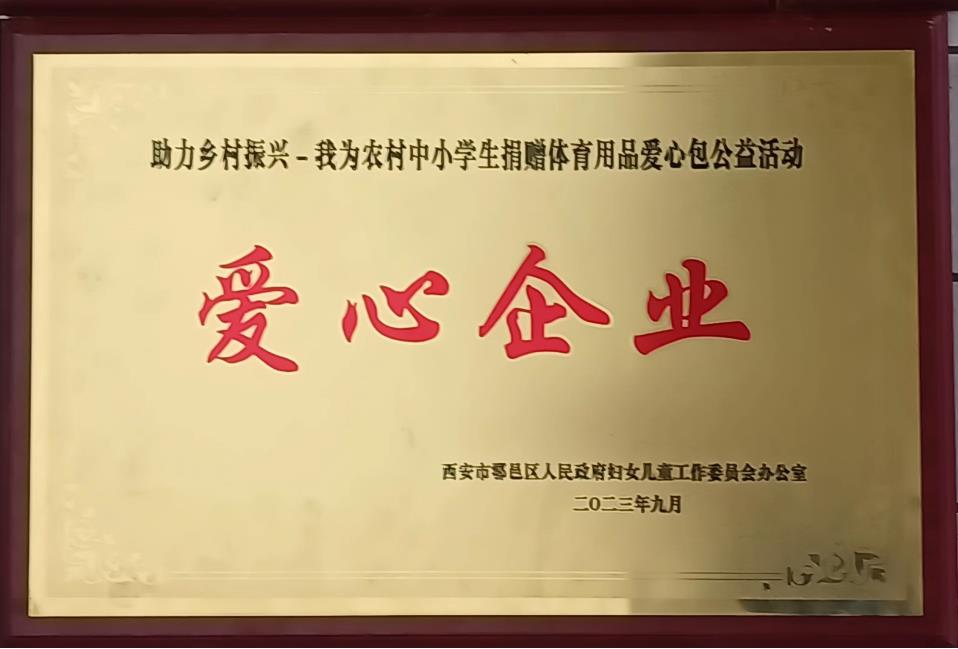 助力乡村振兴–我为农村中小学生捐赠体育用品爱心包公益活动
爱心企业
西安市鄠邑区人民政府妇女儿童工作委员会办公室
二〇二三年九月